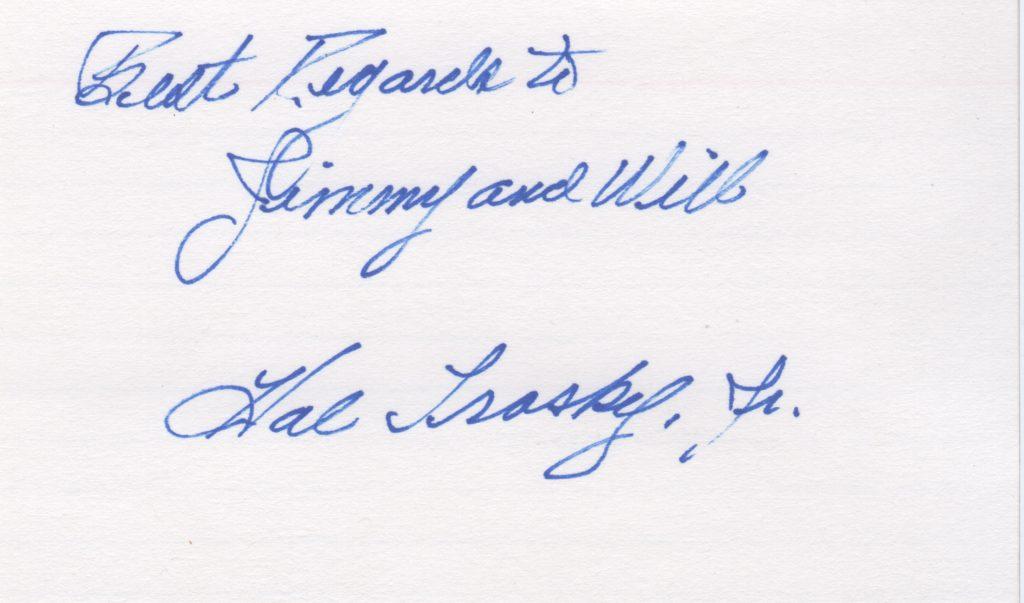 Best Regards to
Jimmy and Will
Hal Trosky, Jr.